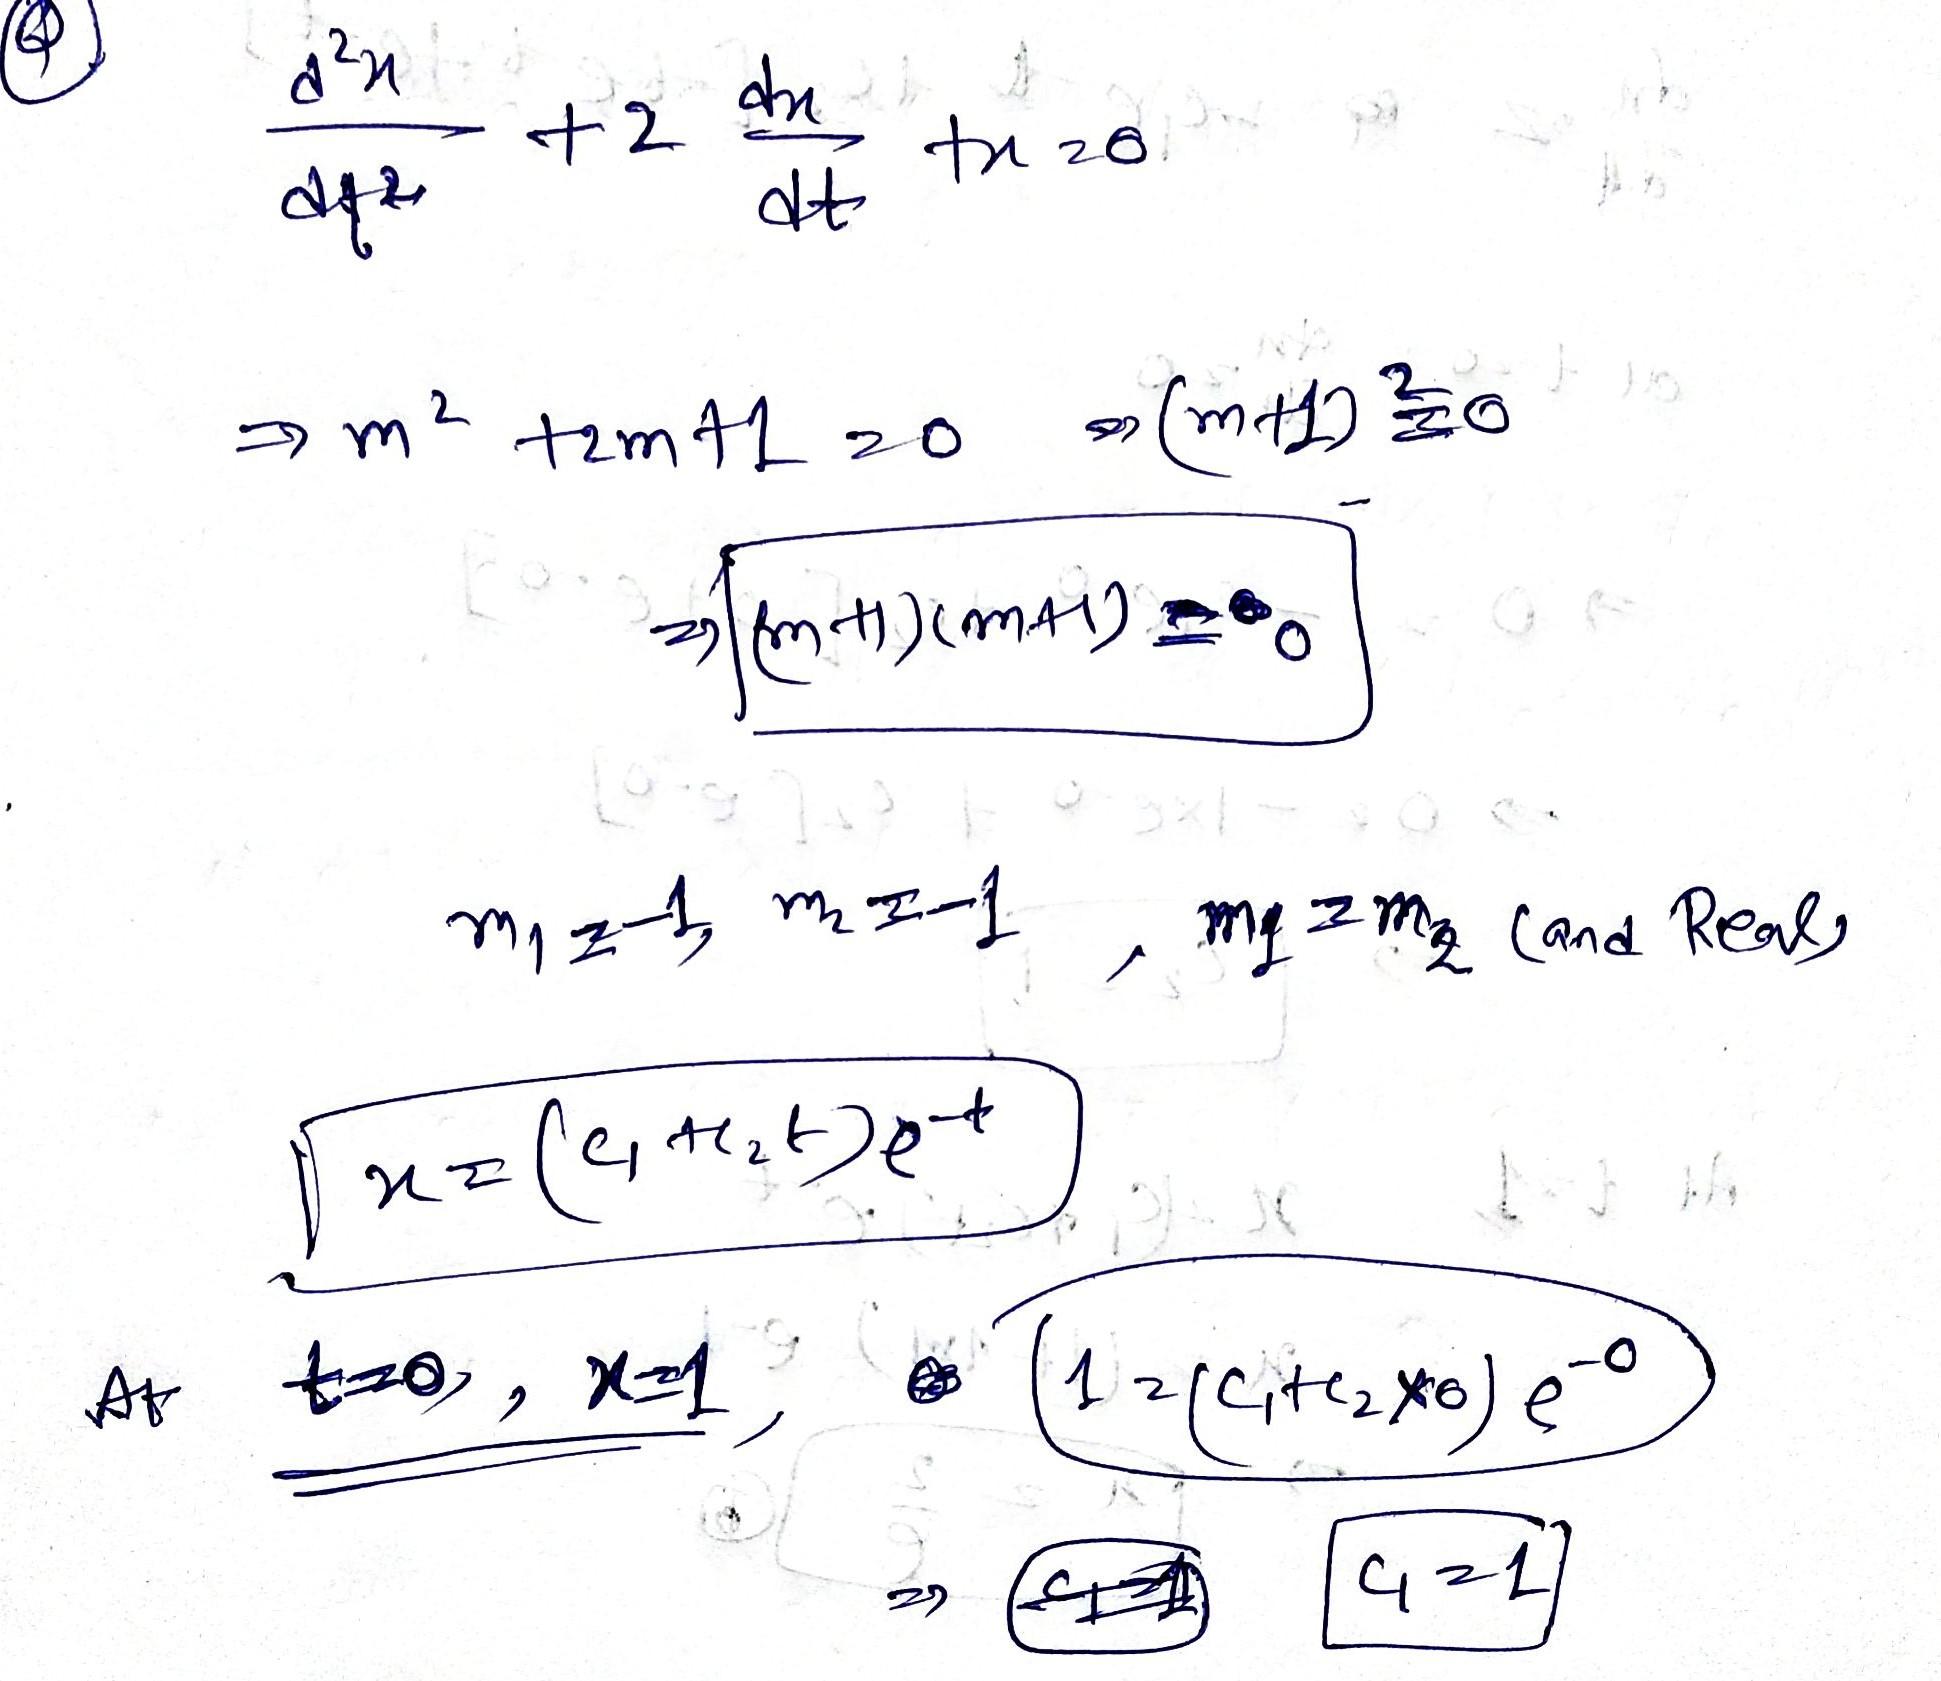 ④
d²x/dt² + 2 dx/dt + x = 0
⇒ m² + 2m + 1 = 0 ⇒ (m+1)² = 0
⇒ (m+1)(m+1) = 0
m₁ = -1, m₂ = -1, m₁ = m₂ (and Real)
x = (c₁ + c₂t)e^-t
At t=0, , x=1, (1 = (c₁ + c₂ × 0) e^-0
⇒ c₁ = 1 c₁ = 1